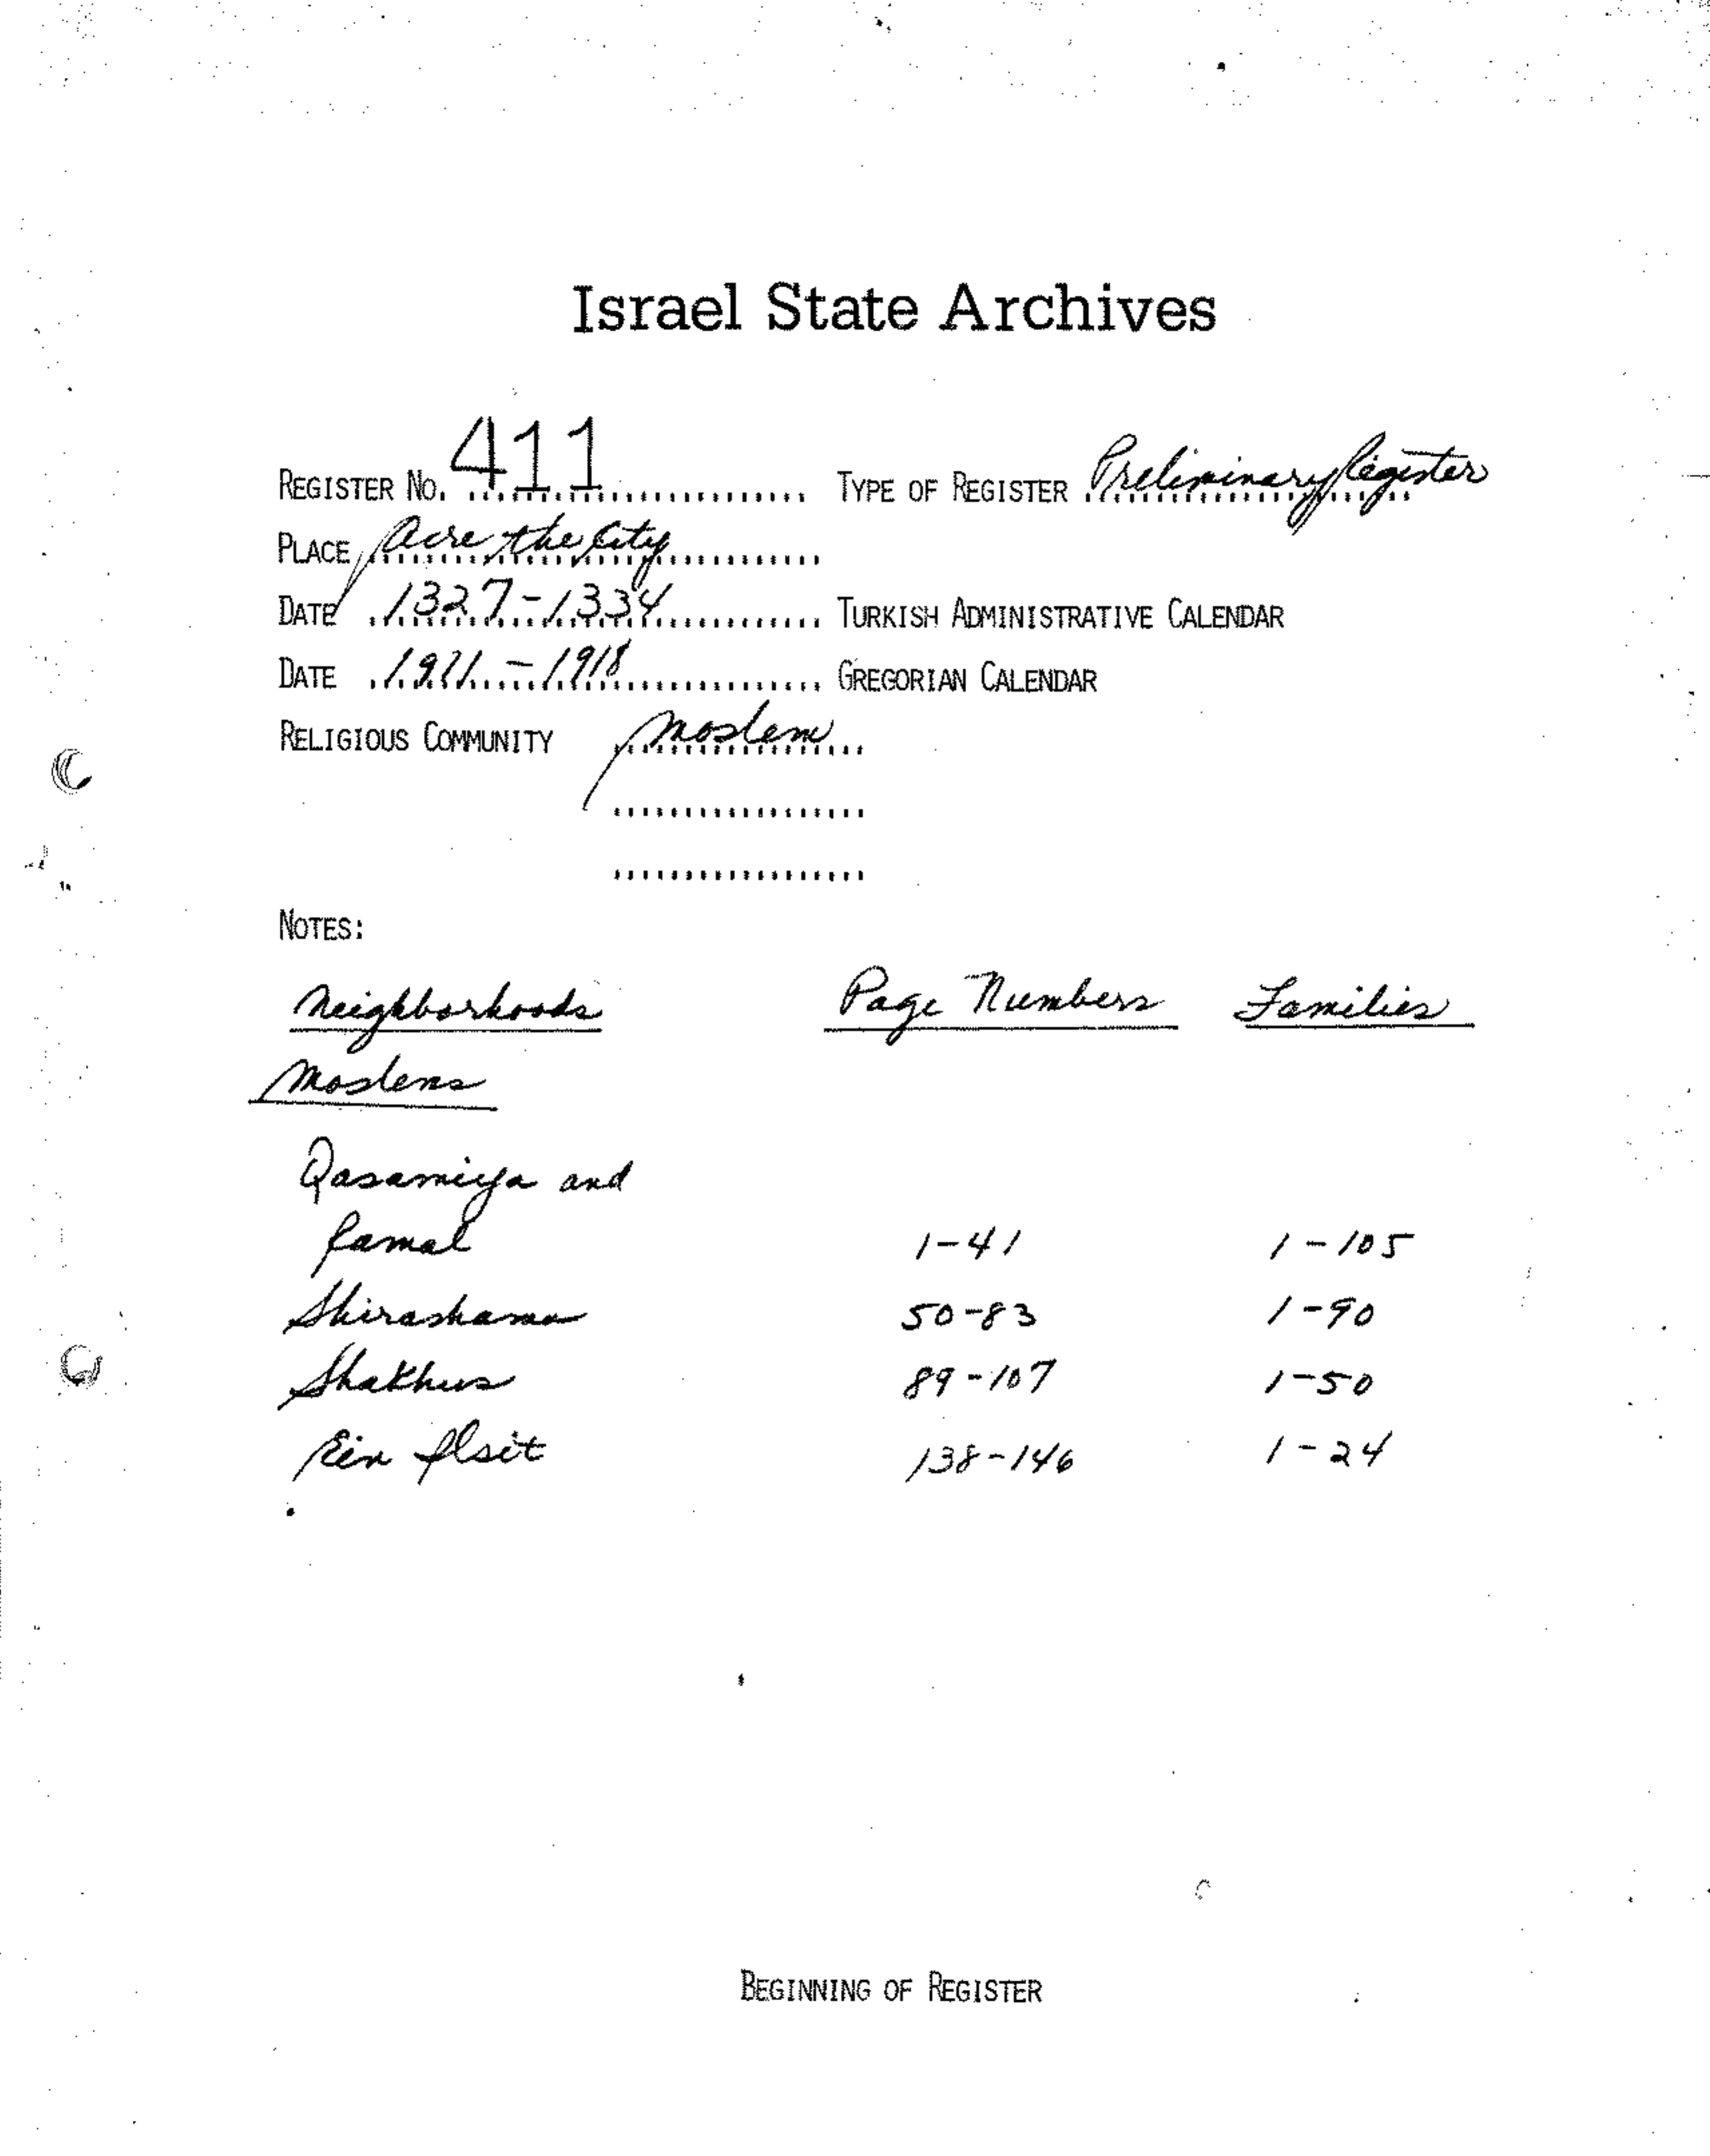 Israel State Archives
REGISTER NO. 411 TYPE OF REGISTER Preliminary Register
PLACE Acre, the City
DATE 1327-1334 TURKISH ADMINISTRATIVE CALENDAR
DATE 1911-1918 GREGORIAN CALENDAR
RELIGIOUS COMMUNITY Moslem
NOTES:
Neighborhoods Page Numbers Families
Moslems
Qasamiya and
1-41 1-105
50-83 1-90
89-107 1-50
Ein 138-146 1-24
BEGINNING OF REGISTER